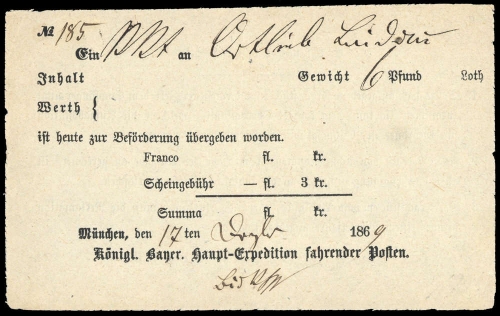 № 185
Ein Pkt an Ortlieb Lindau
Inhalt Gewicht 6 Pfund Loth
Werth {
ist heute zur Beförderung übergeben worden.
Franco fl. kr.
Scheingebühr — fl. 3 kr.
Summa fl. kr.
München, den 17 ten 1869
Königl. Bayer. Haupt-Expedition fahrender Posten.